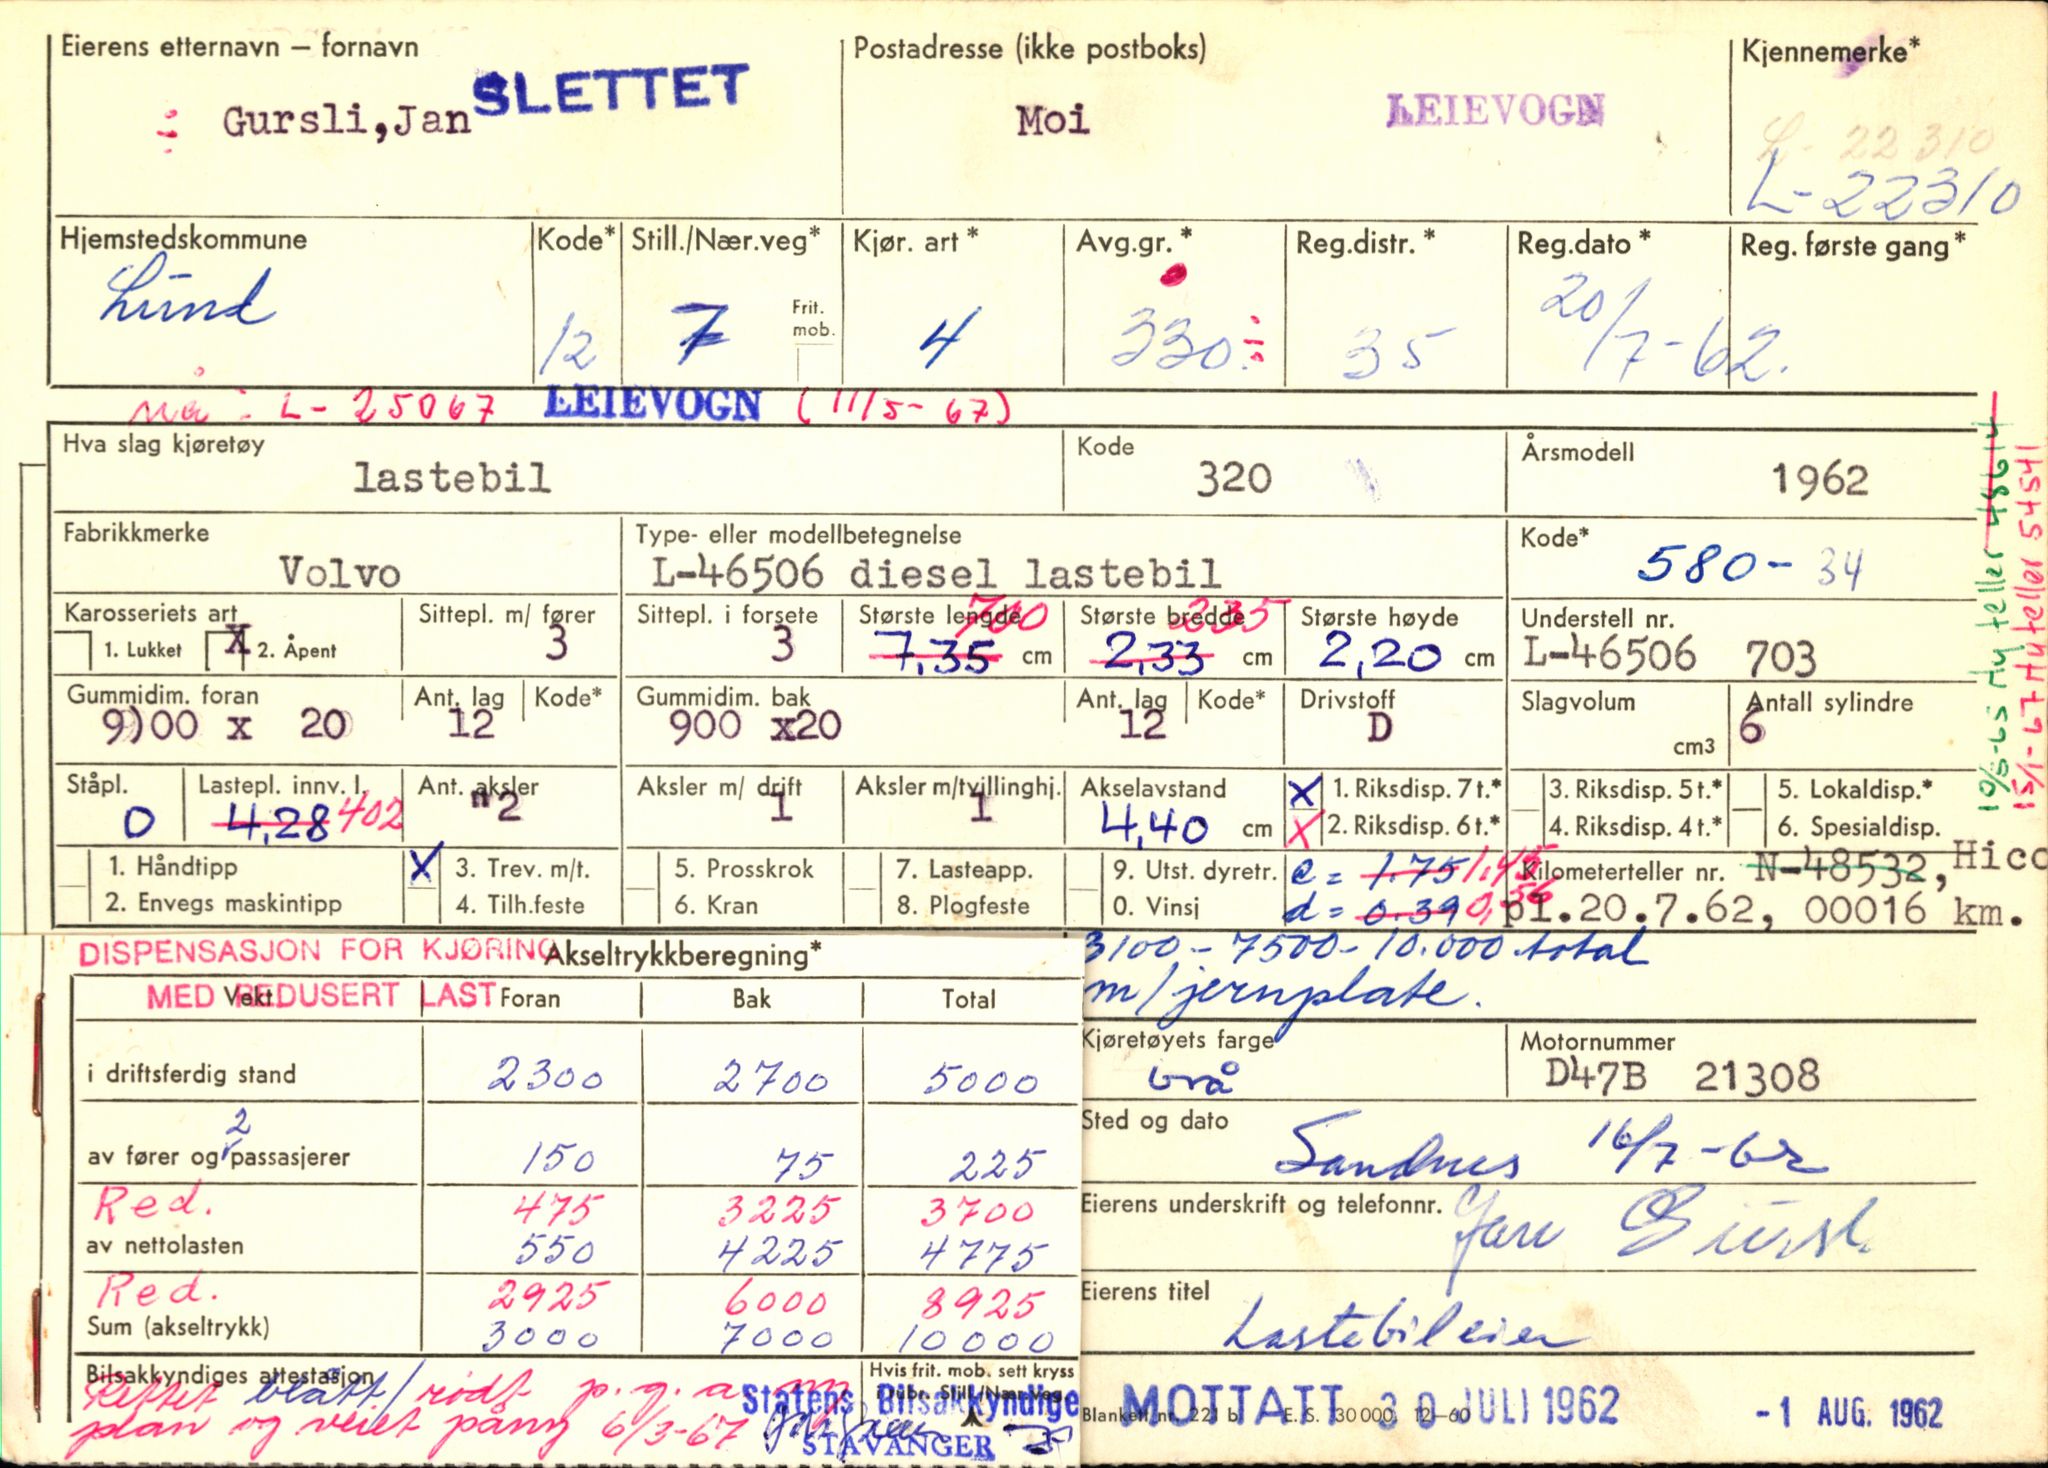 Eierens etternavn – fornavn
Postadresse (ikke postboks)
Kjennemerke*
SLETTET
Gursli,Jan
Moi
LEIEVOGN
L-22310
L-22310
Hjemstedskommune
Kode*
Still./Nær.veg*
Kjør. art*
Avg.gr.*
Reg.distr.*
Reg.dato*
Reg. første gang*
Lund
12
7
Frit. mob.
4
330
35
20/7-62.
nå: L-25067 LEIEVOGN (11/5-67)
Hva slag kjøretøy
Kode
Årsmodell
lastebil
320
1962
Fabrikkmerke
Type- eller modellbetegnelse
Kode*
Volvo
L-46506 diesel lastebil
580-34
Karosseriets art
Sittepl. m/ fører
Sittepl. i forsete
Største lengde
Største bredde
Største høyde
Understell nr.
700
235
1. Lukket
X 2. Åpent
3
3
7,35 cm
2,33 cm
2,20 cm
L-46506 703
Gummidim. foran
Ant. lag
Kode*
Gummidim. bak
Ant. lag
Kode*
Drivstoff
Slagvolum
Antall sylindre
9)00 x 20
12
900 x20
12
D
cm3
6
Ståpl.
Lastepl. innv. l.
Ant. aksler
Aksler m/ drift
Aksler m/tvillinghj.
Akselavstand
X 1. Riksdisp. 7 t.*
3. Riksdisp. 5 t.*
5. Lokaldisp.*
0
4,28 402
"2
1
1
4,40 cm
X 2. Riksdisp. 6 t.*
4. Riksdisp. 4 t.*
6. Spesialdisp.
1. Håndtipp
X 3. Trev. m/t.
5. Prosskrok
7. Lasteapp.
9. Utst. dyretr.
e = 1.75 1,45
Kilometerteller nr. N-48532, Hico
2. Envegs maskintipp
4. Tilh.feste
6. Kran
8. Plogfeste
0. Vinsj
d = 0.39 0,56
pl.20.7.62, 00016 km.
10/5-65 Ny teller 48614
15/1-67 Ny teller 54541
DISPENSASJON FOR KJØRING
MED REDUSERT LAST
Akseltrykkberegning*
3100 - 7500 - 10.000 total
m/jernplate.
Vekt
Foran
Bak
Total
Kjøretøyets farge
Motornummer
i driftsferdig stand
2300
2700
5000
Grå
D47B 21308
Sted og dato
2
av fører og passasjerer
150
75
225
Sandnes 16/7-62
Red.
475
3225
3700
Eierens underskrift og telefonnr.
av nettolasten
550
4225
4775
Jan Gursli
Red.
2925
6000
8925
Eierens titel
Sum (akseltrykk)
3000
7000
10000
Lastebileier
Bilsakkyndiges attestasjon
Hvis frit. mob. sett kryss
i rubr. Still./Nær.veg.
Rettet blått/rødt p.g.a. ny
plan og veiet påny 6/3-67
Statens Bilsakkyndige
STAVANGER
Blankett nr. 221 b E.S. 30000. 12-60
MOTTATT 30 JULI 1962
-1 AUG. 1962